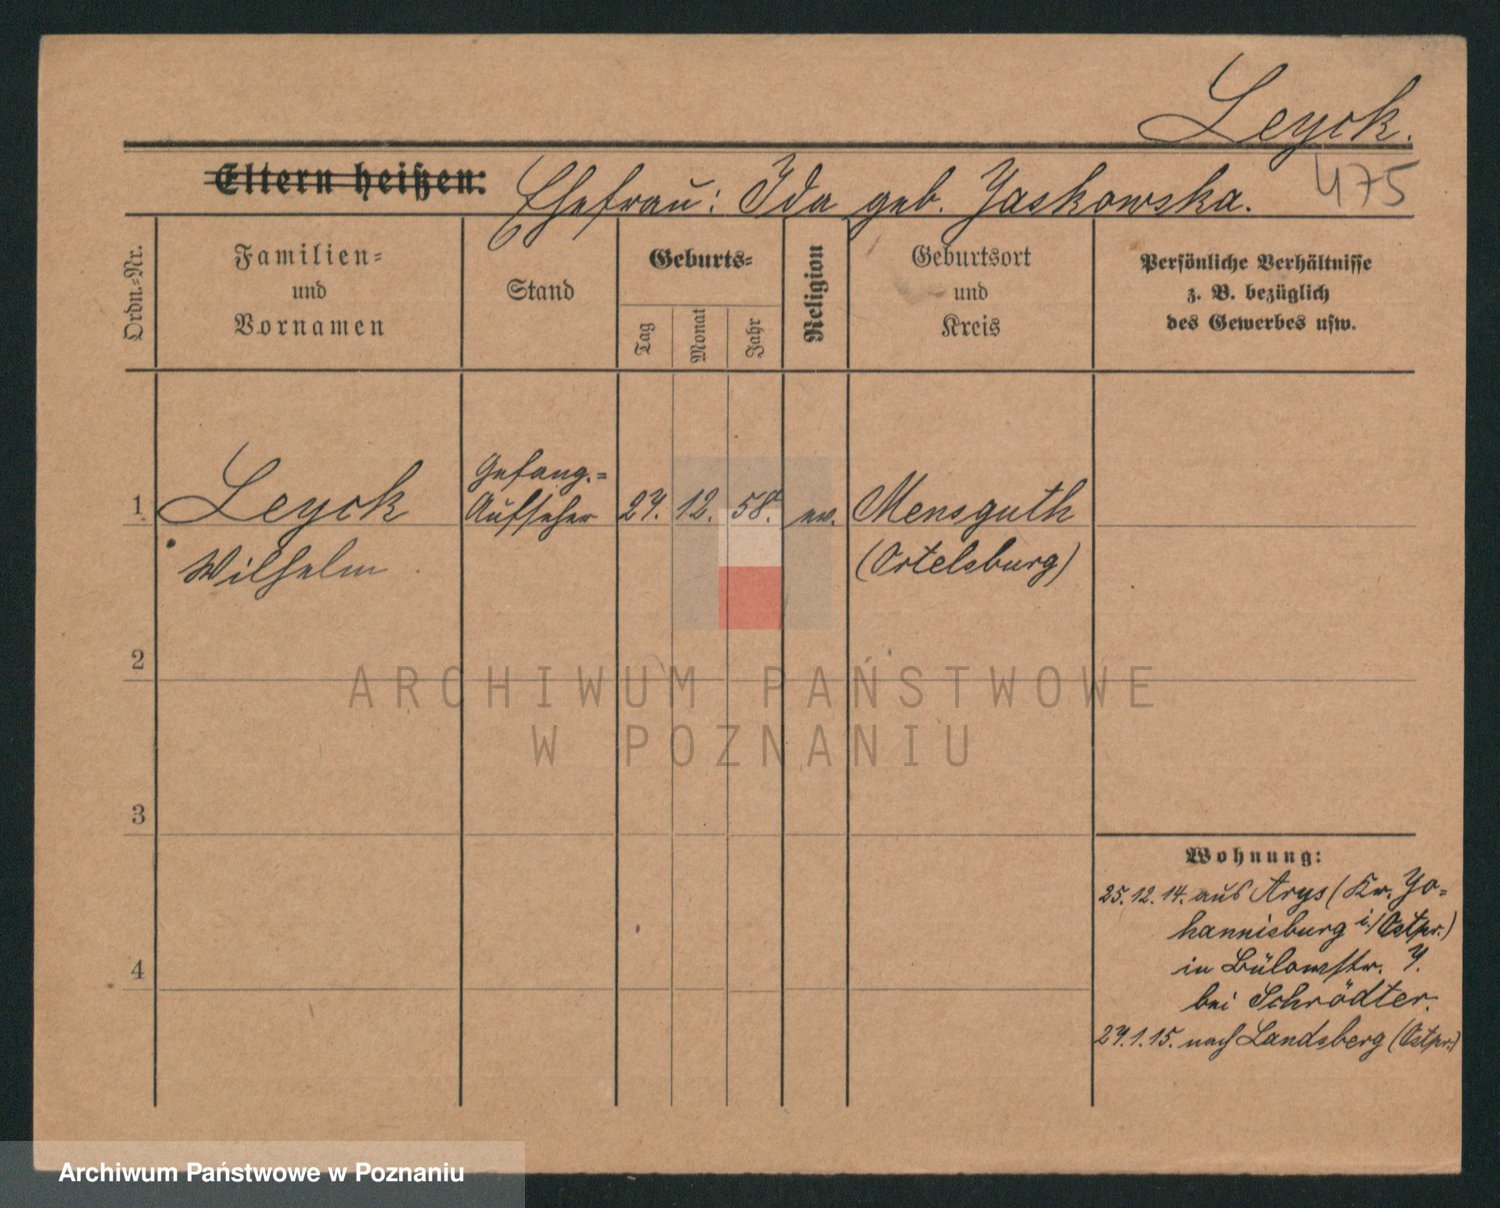 Leyck.
475
Eltern heißen: Ehefrau: Ida geb. Jaskowska.
Ordn.-Nr.
Familien-
und
Vornamen
Stand
Geburts-
Tag
Monat
Jahr
Religion
Geburtsort
und
Kreis
Persönliche Verhältnisse
z. B. bezüglich
des Gewerbes usw.
Gefang.=
1 Leyck Aufseher 27. 12. 58. ev. Mensguth
Wilhelm (Ortelsburg)
2
ARCHIWUM PAŃSTWOWE
W POZNANIU
3
Wohnung:
25.12.14. aus Arys (Kr. Jo=
hannisburg i/Ostpr.)
in Bülowstr. 7.
bei Schrödter.
27.1.15. nach Landsberg (Ostpr.)
4
Archiwum Państwowe w Poznaniu